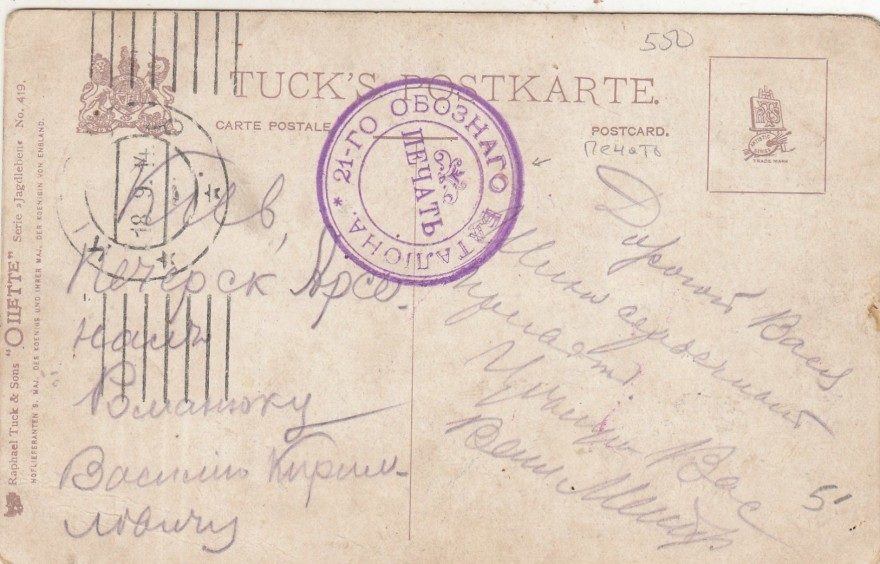 550
TUCK'S POSTKARTE.
CARTE POSTALE
POSTCARD.
Печать
TRADE MARK
* 21-ГО ОБОЗНАГО БАТАЛІОНА.
ПЕЧАТЬ
18.9.14
Raphael Tuck & Sons "OILETTE" Serie »Jagdleben« No. 419.
HOFLIEFERANTEN S. MAJ. DES KOENIGS UND IHRER MAJ. DER KOENIGIN VON ENGLAND.
Киев,
Печерск Арсе-
налъ
Романюку
Василію Кирил-
ловичу
Дорогой Вася
привет!
Целую Вас
Ваш
5'